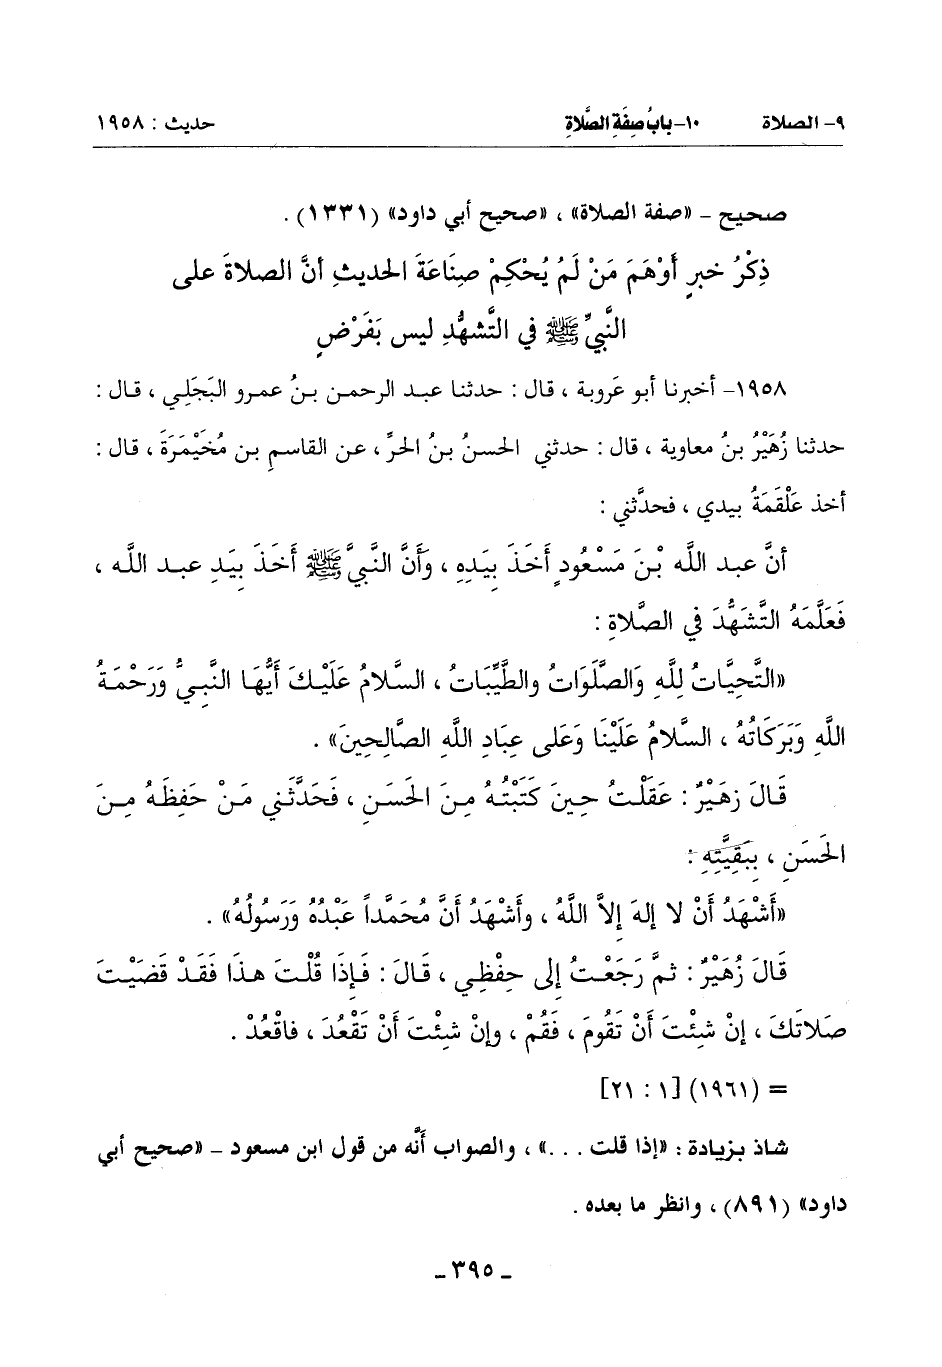 ٩- الصلاة ١٠- بابُ صِفَةِ الصَّلَاةِ حديث : ١٩٥٨
صحيح - «صفة الصلاة» ، «صحيح أبي داود» (١٣٣١) .
ذِكْرُ خبرٍ أَوْهَمَ مَنْ لَمْ يُحْكِمْ صِنَاعَةَ الحديثِ أنَّ الصلاةَ على
النَّبِيِّ ﷺ في التَّشهُّدِ ليس بَفَرْضٍ
١٩٥٨- أخبرنا أبو عَروبة ، قال : حدثنا عبد الرحمن بنُ عمرو البَجَلي ، قال :
حدثنا زُهَيْرُ بنُ معاوية ، قال : حدثني الحسنُ بنُ الحرِّ ، عن القاسمِ بن مُخَيْمَرَةَ ، قال :
أخذ عَلْقَمَةُ بيدي ، فحدَّثني :
أنَّ عبد اللَّه بْنَ مَسْعُودٍ أَخَذَ بِيَدِهِ ، وَأَنَّ النَّبِيَّ ﷺ أَخَذَ بِيَدِ عبد اللَّه ،
فَعَلَّمَهُ التَّشَهُّدَ في الصَّلاةِ :
«التَّحِيَّاتُ لِلَّهِ وَالصَّلَوَاتُ والطَّيِّبَاتُ ، السَّلامُ عَلَيْكَ أَيُّهَا النَّبِيُّ وَرَحْمَةُ
اللَّهِ وَبَرَكَاتُهُ ، السَّلامُ عَلَيْنَا وَعَلى عِبَادِ اللَّهِ الصَّالِحِينَ» .
قَالَ زهَيْرٌ : عَقَلْتُ حِينَ كَتَبْتُهُ مِنَ الحَسَنِ ، فَحَدَّثَنِي مَنْ حَفِظَهُ مِنَ
الحَسَنِ ، بِبَقِيَّتِهِ :
«أَشْهَدُ أَنْ لا إلهَ إِلاَّ اللَّهُ ، وأَشْهَدُ أَنَّ مُحَمَّداً عَبْدُهُ وَرَسُولُهُ» .
قَالَ زُهَيْرٌ : ثمَّ رَجَعْتُ إلى حِفْظِي ، قَالَ : فَإِذَا قُلْتَ هذَا فَقَدْ قَضَيْتَ
صَلاتَكَ ، إنْ شِئْتَ أَنْ تَقُومَ ، فَقُمْ ، وإنْ شِئْتَ أَنْ تَقْعُدَ ، فاقْعُدْ .
= (١٩٦١) [١ : ٢١]
شاذ بزيادة : «إذا قلت ...» ، والصواب أنَّه من قول ابن مسعود - «صحيح أبي
داود» (٨٩١) ، وانظر ما بعده .
- ٣٩٥ -